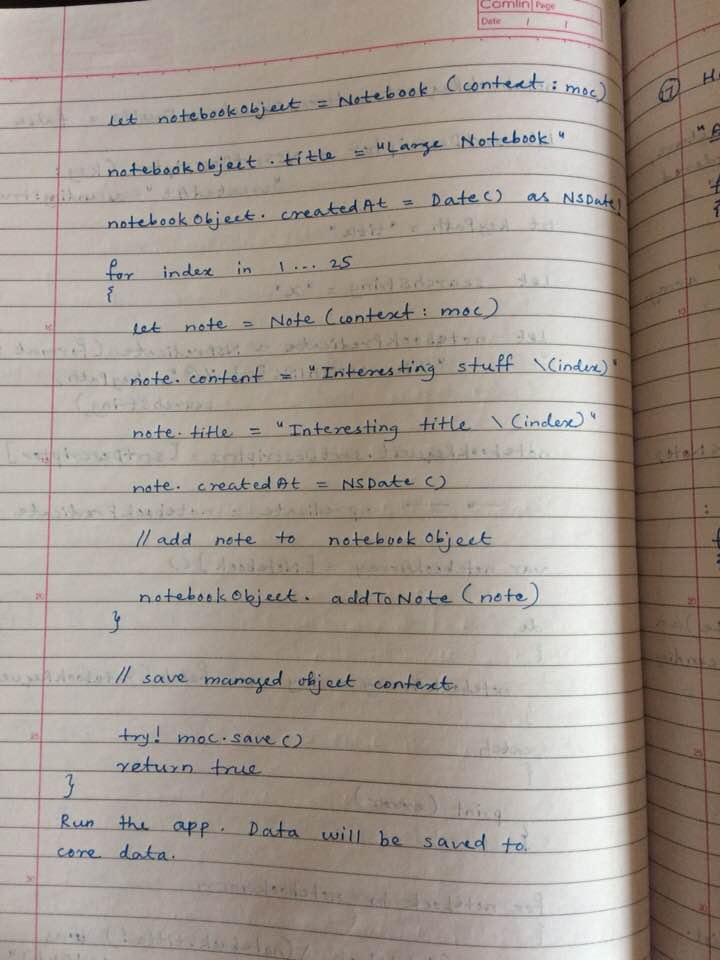 Camlin Page
Date / /
let notebookObject = Notebook (context : moc)
notebookObject . title = "Large Notebook"
notebookObject . createdAt = Date() as NSDate
for index in 1 ... 25
{
let note = Note (context : moc)
note. content = "Interesting" stuff \(index)"
note. title = "Interesting title \(index)"
note. createdAt = NSDate ()
// add note to notebookObject
notebookObject . addToNote (note)
}
// save managed object context
try! moc.save()
return true
}
Run the app. Data will be saved to
core data.
7